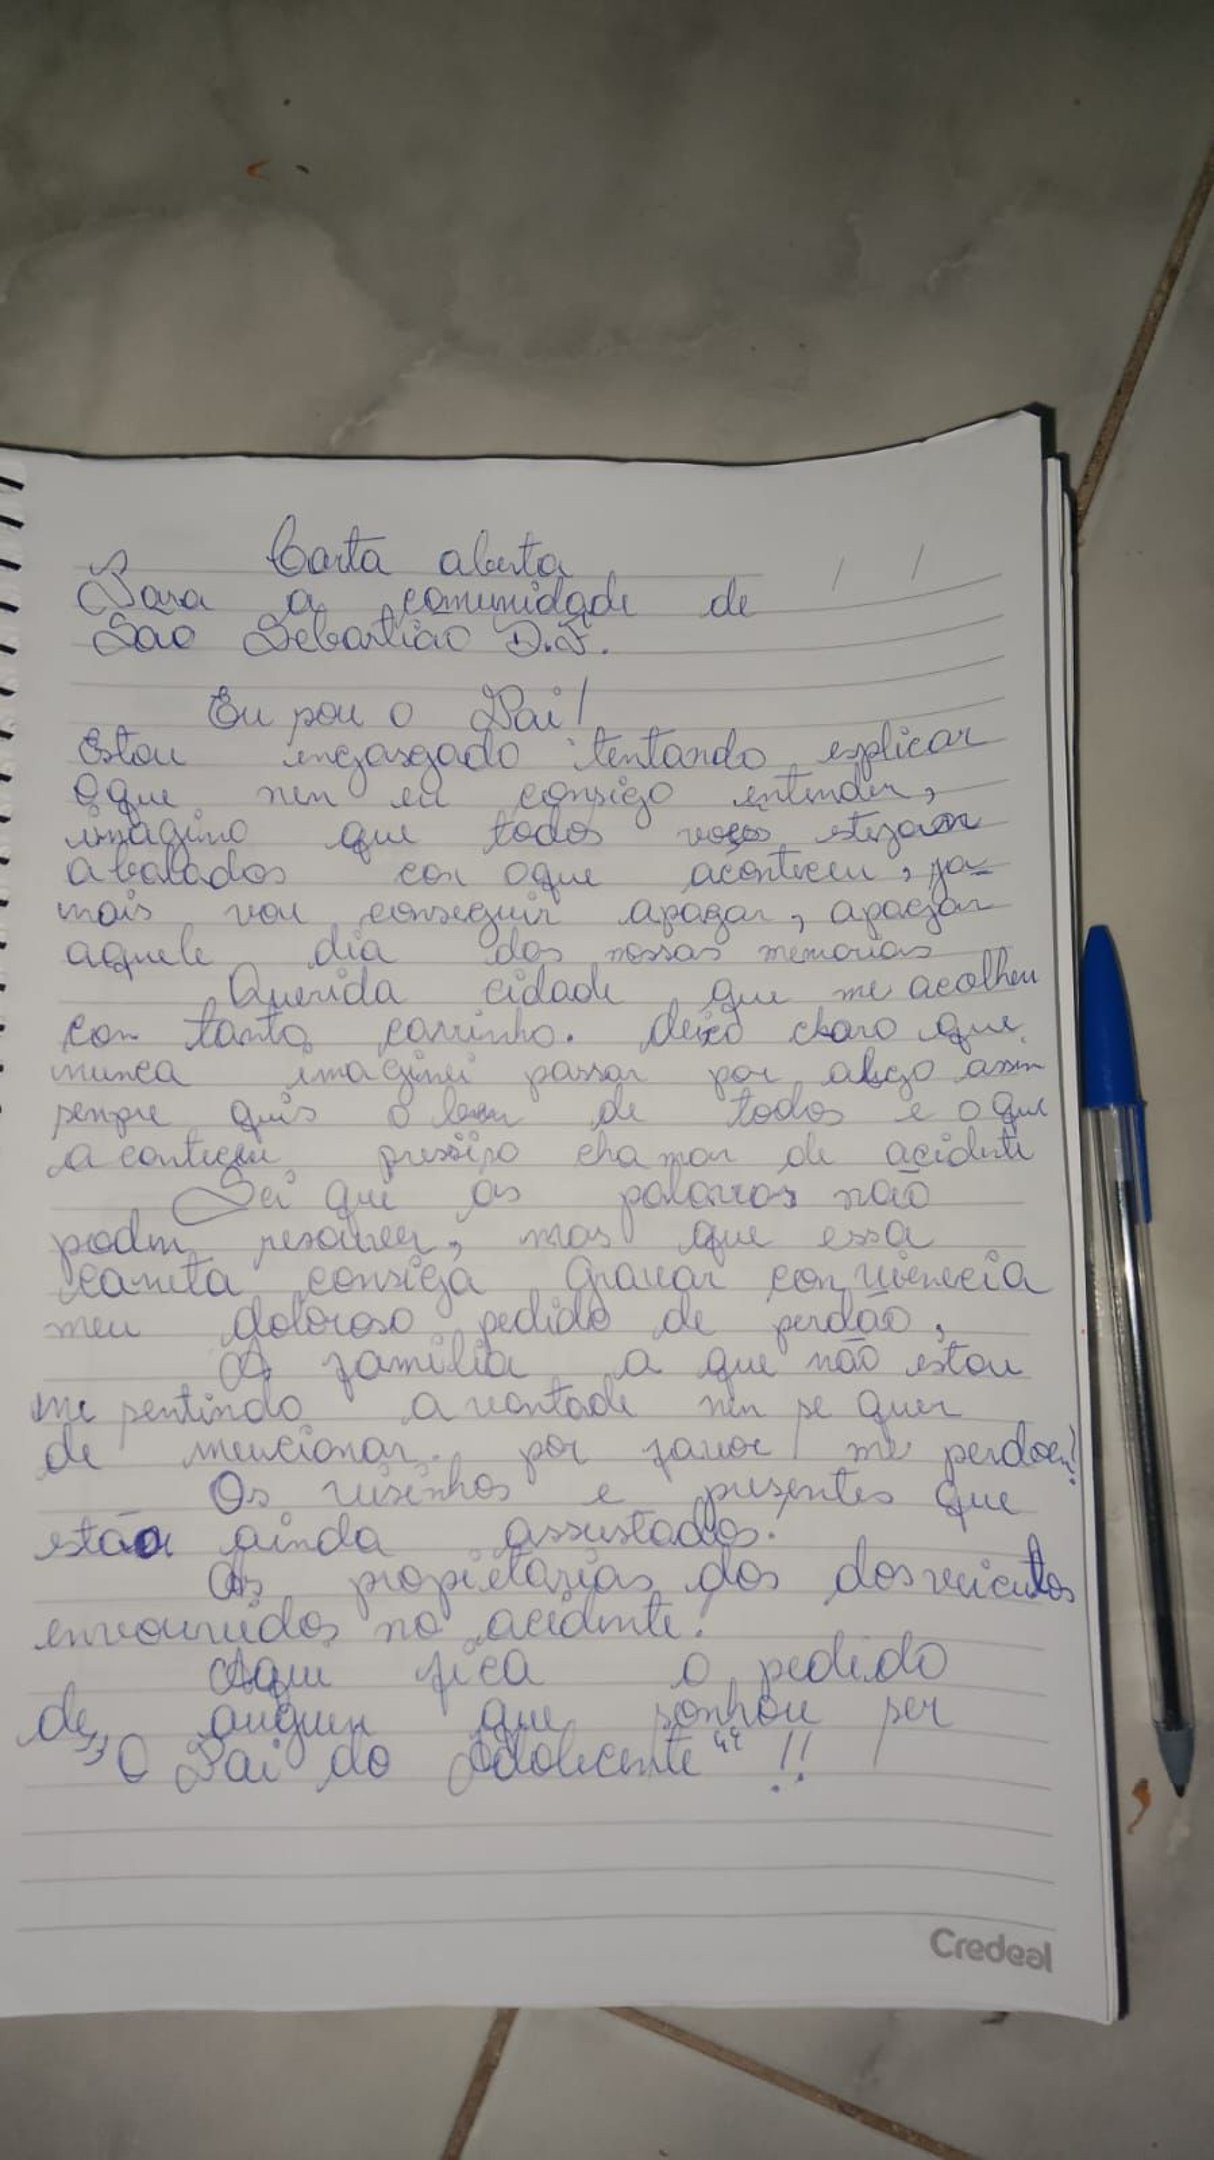 Carta aberta
Para a comunidade de
São Sebastião D.F.
Eu sou o Pai!
Estou engasgado tentando esplicar
oque nem eu consigo entender,
imagino que todos vocês estejam
abalados com oque aconteceu, ja-
mais vou conseguir apagar, apagar
aquele dia das nossas memorias
Querida cidade que me acolheu
com tanto carrinho. deixo claro que
nunca imaginei passar por algo assim
sempre quis o bem de todos e o que
aconteceu pressiso chamar de acidente
Sei que as palavras não
podem resouver, mas que essa
caneta consiga gravar con
meu doloroso pedido de perdão,
A familia a que não estou
me sentindo a vontade nem se quer
de mencionar. por favor me perdoem!
Os visinhos e presentes que
estão ainda assustados!
As propietarias dos dos veiculos
envouvidos no acidente!
Aqui fica o pedido
de auguen que sonhou ser
,,O Pai do Adolecente“ !!
Credeal